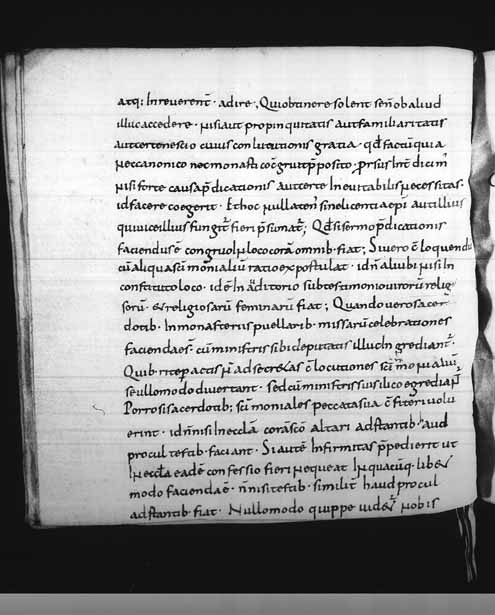 atq; Inreverenꞇ̄ · adire, Qui obtinere solent se n̄ ob aliud
illuc accedere · nisi aut propinquitatis aut familiaritatis
aut certe nescio cuius conlocutionis gratia · qđ factū quia
nec canonico nec monasti congruit pposito, prsus Int dicim̄
nisi forte causa pdicationis aut certe Inevitabilis necessitas·
id facere coegerit · Et hoc nullaten̄ sine licentia ep̄i aut illius
qui vice illius fungit̄ fieri psumat̄; Qđ si sermo pdicationis
faciendus ē congruo In loco corā omnib· fiat; Si vero c̄loquendi
cū aliqua scī monialiū ratio expostulat · id n̄ alicubi nisi In
constituto loco · id ē In auditorio sub testimonio virorū relig
sorū · & religiosarū feminarū fiat; Quando vero sacer
dotib· In monasteriis puellarib· missarū celebrationes
faciendae s̄ · cū ministris sibi deputatis illuc Ingrediant̄·
Quib· rite peractis n̄ ad secretas c̄locutiones scī monialiū
seu ullomodo divertant · sed cū ministris suis ilico egrediant̄
Porro si sacerdotib; scī moniales peccata sua c̄fiteri volu
erint · id n̄ nisi In eccła corā sc̄o altari adstantib· haud
procul testib· faciant · Si autē Infirmitas ppedierit ut
In eccła eadē confessio fieri nequeat In quacūq· libet
modo faciendaē · n̄ nisi testib· similiꞇ̄ haud procul
adstantib· fiat · Nullomodo quippe videt̄ nobis